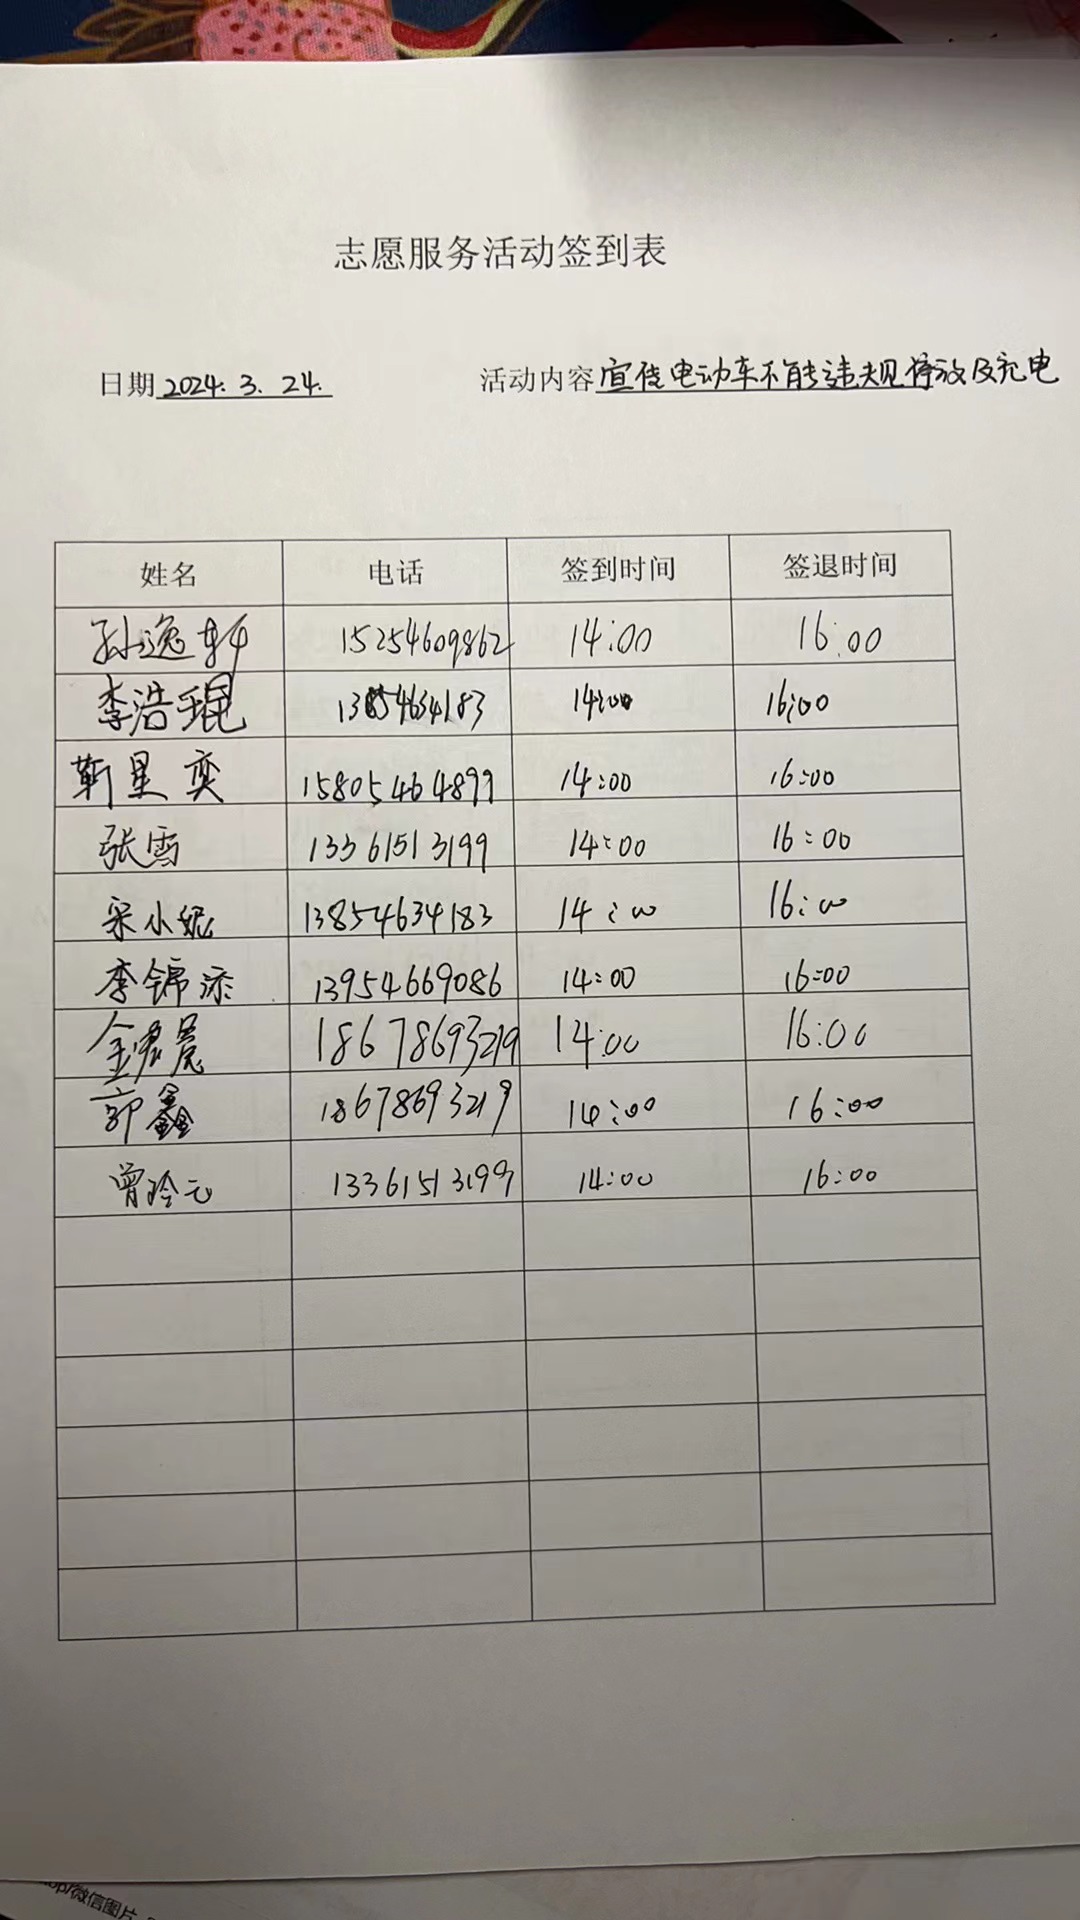 志愿服务活动签到表
日期 2024. 3. 24. 活动内容 宣传电动车不能违规停放及充电
姓名 电话 签到时间 签退时间
孙逸轩 15254609862 14:00 16:00
李浩琨 13854634183 14:00 16:00
靳星奕 15805464899 14:00 16:00
张雪 13361513199 14:00 16:00
宋小妮 13854634183 14:00 16:00
李锦添 13954669086 14:00 16:00
金 18678693219 14:00 16:00
郭鑫 18678693219 14:00 16:00
曾玲元 13361513199 14:00 16:00
微信图片